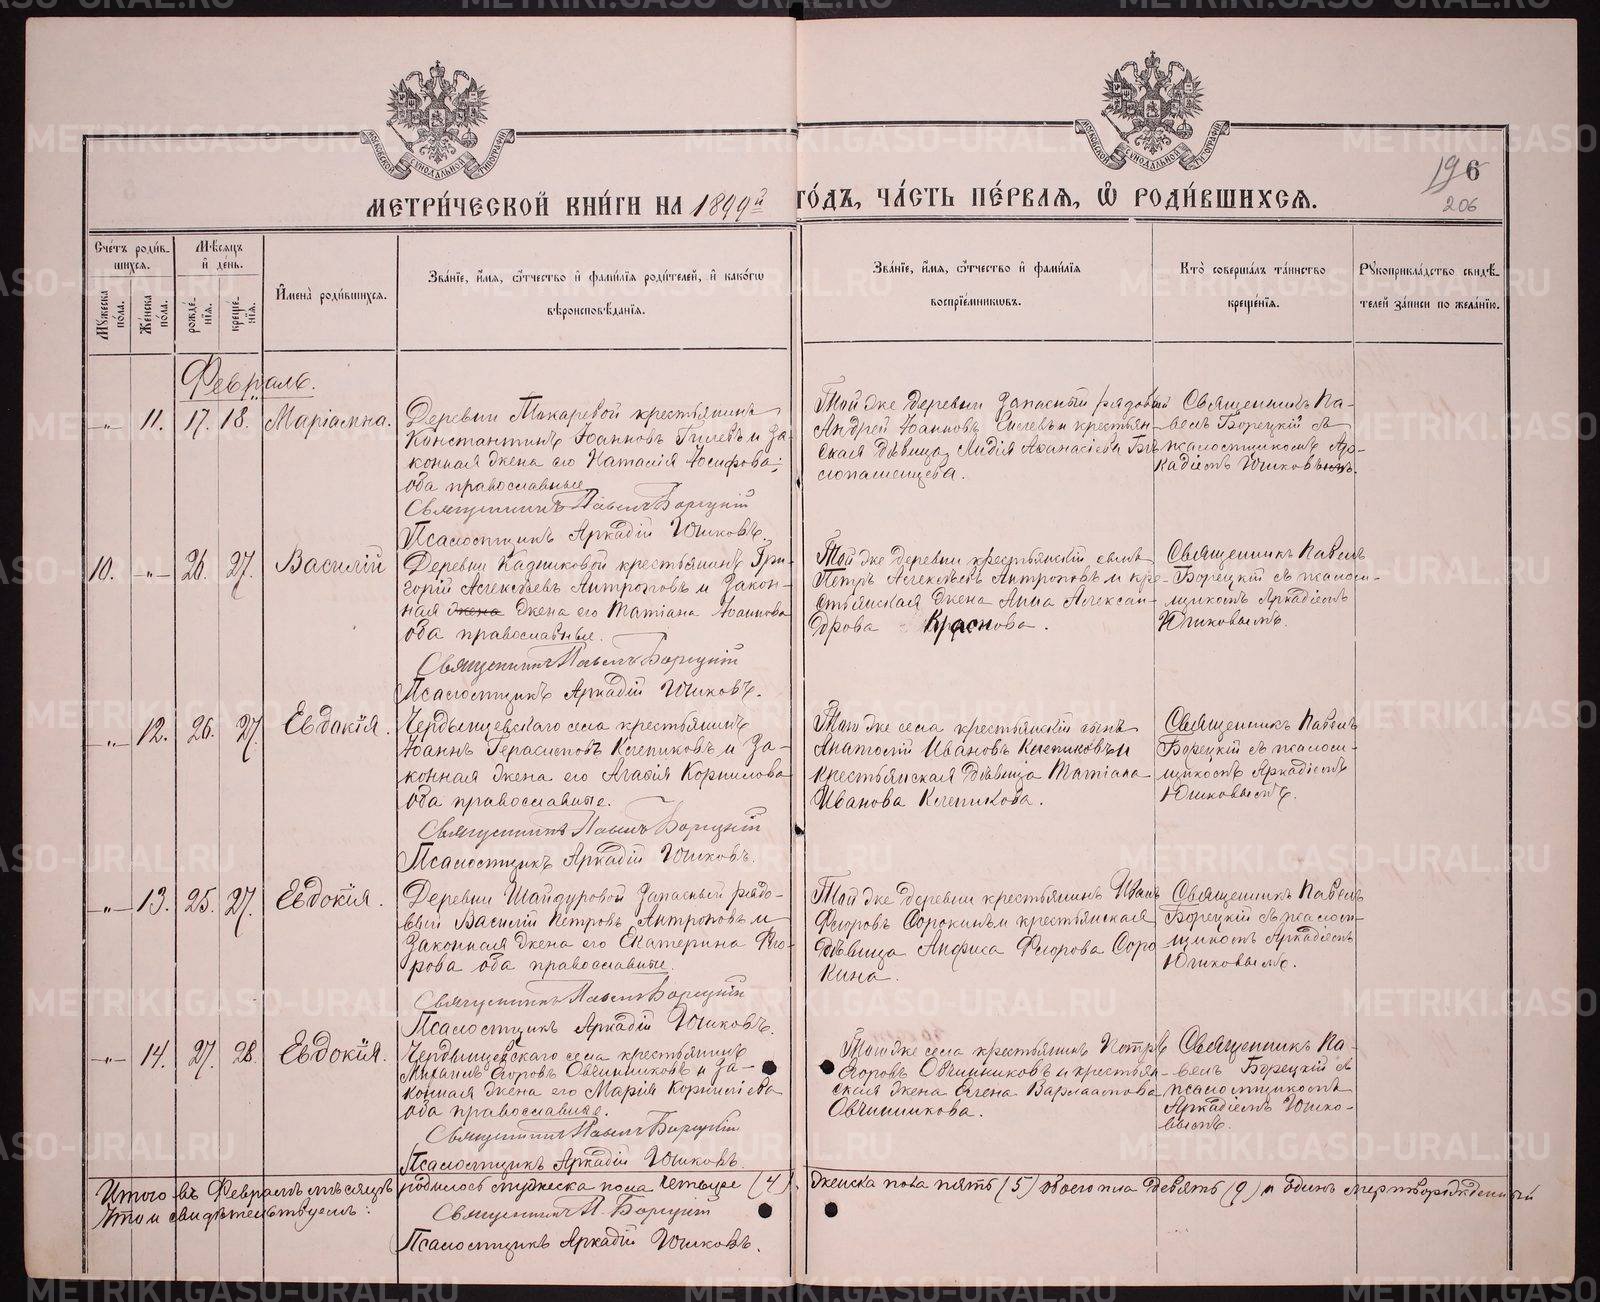 МОСКОВСКОЙ СѴНОДАЛЬНОЙ ТИПОГРАФІИ
МОСКОВСКОЙ СѴНОДАЛЬНОЙ ТИПОГРАФІИ
196
206
МЕТРИ́ЧЕСКОЙ КНИ́ГИ НА 1899й ГО́ДЪ, ЧА́СТЬ ПЕ́РВАѦ, Ѡ РОДИ́ВШИХСѦ.
Сче́тъ роди́вшихсѧ.
Му́жеска по́ла.
Же́нска по́ла.
Мѣ́сѧцъ и де́нь.
рожде́нїѧ.
креще́нїѧ.
И҆мена̀ роди́вшихсѧ.
Зва́нїе, и҆́мѧ, ѻ҆́тчество и҆ фами́лїѧ роди́телей, и҆ како́гѡ
вѣроисповѣ́данїѧ.
Зва́нїе, и҆́мѧ, ѻ҆́тчество и҆ фами́лїѧ
воспрїе́мниковъ.
Кто̀ соверша́лъ та́инство
креще́нїѧ.
Рꙋкоприкла́дство свидѣ́телей за́писи по жела́нїю.
Февраль.
-„- 11. 17. 18. Маріамна.
Деревни Макаревой крестьянинъ
Константинъ Іоанновъ Гилевъ и за-
конная жена его Наталія Іосифова;
оба православные.
Священникъ Павелъ Борецкій
Псаломщикъ Аркадій Юшковъ.
Той же деревни запасный рядовой
Андрей Іоанновъ Гилевъ и крестьян-
ская дѣвица Лидія Аѳанасіева Бѣ-
лопашенцева.
Священникъ Па-
велъ Борецкій съ
псаломщикомъ Ар-
кадіемъ Юшковымъ.
10. -„- 26. 27. Василій
Деревни Кадниковой крестьянинъ Гри-
горій Алексѣевъ Антроповъ и закон-
ная жена жена его Татіана Іоаннова
оба православные.
Священникъ Павелъ Борецкій
Псаломщикъ Аркадій Юшковъ.
Той же деревни крестьянскій сынъ
Петръ Алексѣевъ Антроповъ и кре-
стьянская жена Анна Алексан-
дрова Краснова.
Священникъ Павелъ
Борецкій съ псалом-
щикомъ Аркадіемъ
Юшковымъ.
-„- 12. 26. 27. Евдокія.
Чердынцевскаго села крестьянинъ
Іоаннъ Герасимовъ Клепиковъ и за-
конная жена его Агафія Корнилова
оба православные.
Священникъ Павелъ Борецкій
Псаломщикъ Аркадій Юшковъ.
Того же села крестьянскій сынъ
Анатолій Ивановъ Клепиковъ и
крестьянская дѣвица Татіана
Иванова Клепикова.
Священникъ Павелъ
Борецкій съ псалом-
щикомъ Аркадіемъ
Юшковымъ.
-„- 13. 25. 27. Евдокія.
Деревни Шайдуровой запасный рядо-
вый Василій Петровъ Антроповъ и
законная жена его Екатерина Ѳео-
рова оба православные.
Священникъ Павелъ Борецкій
Псаломщикъ Аркадій Юшковъ.
Той же деревни крестьянинъ Иванъ
Ѳедоровъ Сорокинъ и крестьянская
дѣвица Анфиса Ѳедорова Соро
кина.
Священникъ Павелъ
Борецкій съ псалом-
щикомъ Аркадіемъ
Юшковымъ.
-„- 14. 27. 28. Евдокія.
Чердынцевскаго села крестьянинъ
Михаилъ Егоровъ Овчинниковъ и за-
конная жена его Марія Корниліева
оба православные.
Священникъ Павелъ Борецкій
Псаломщикъ Аркадій Юшковъ.
Того же села крестьянинъ Петръ
Егоровъ Овчинниковъ и крестьян-
ская жена Елена Варлаамова
Овчинникова.
Священникъ Па-
велъ Борецкій съ
псаломщикомъ
Аркадіемъ Юшко-
вымъ.
Итого въ Февралѣ мѣсяцѣ родилось мужеска пола четыре (4), женска пола пять (5) обоего пола девять (9) и одинъ мертворожденный
Что и свидѣтельствуемъ:
Священникъ П. Борецкій
Псаломщикъ Аркадій Юшковъ.
METRIKI.GASO-URAL.RU